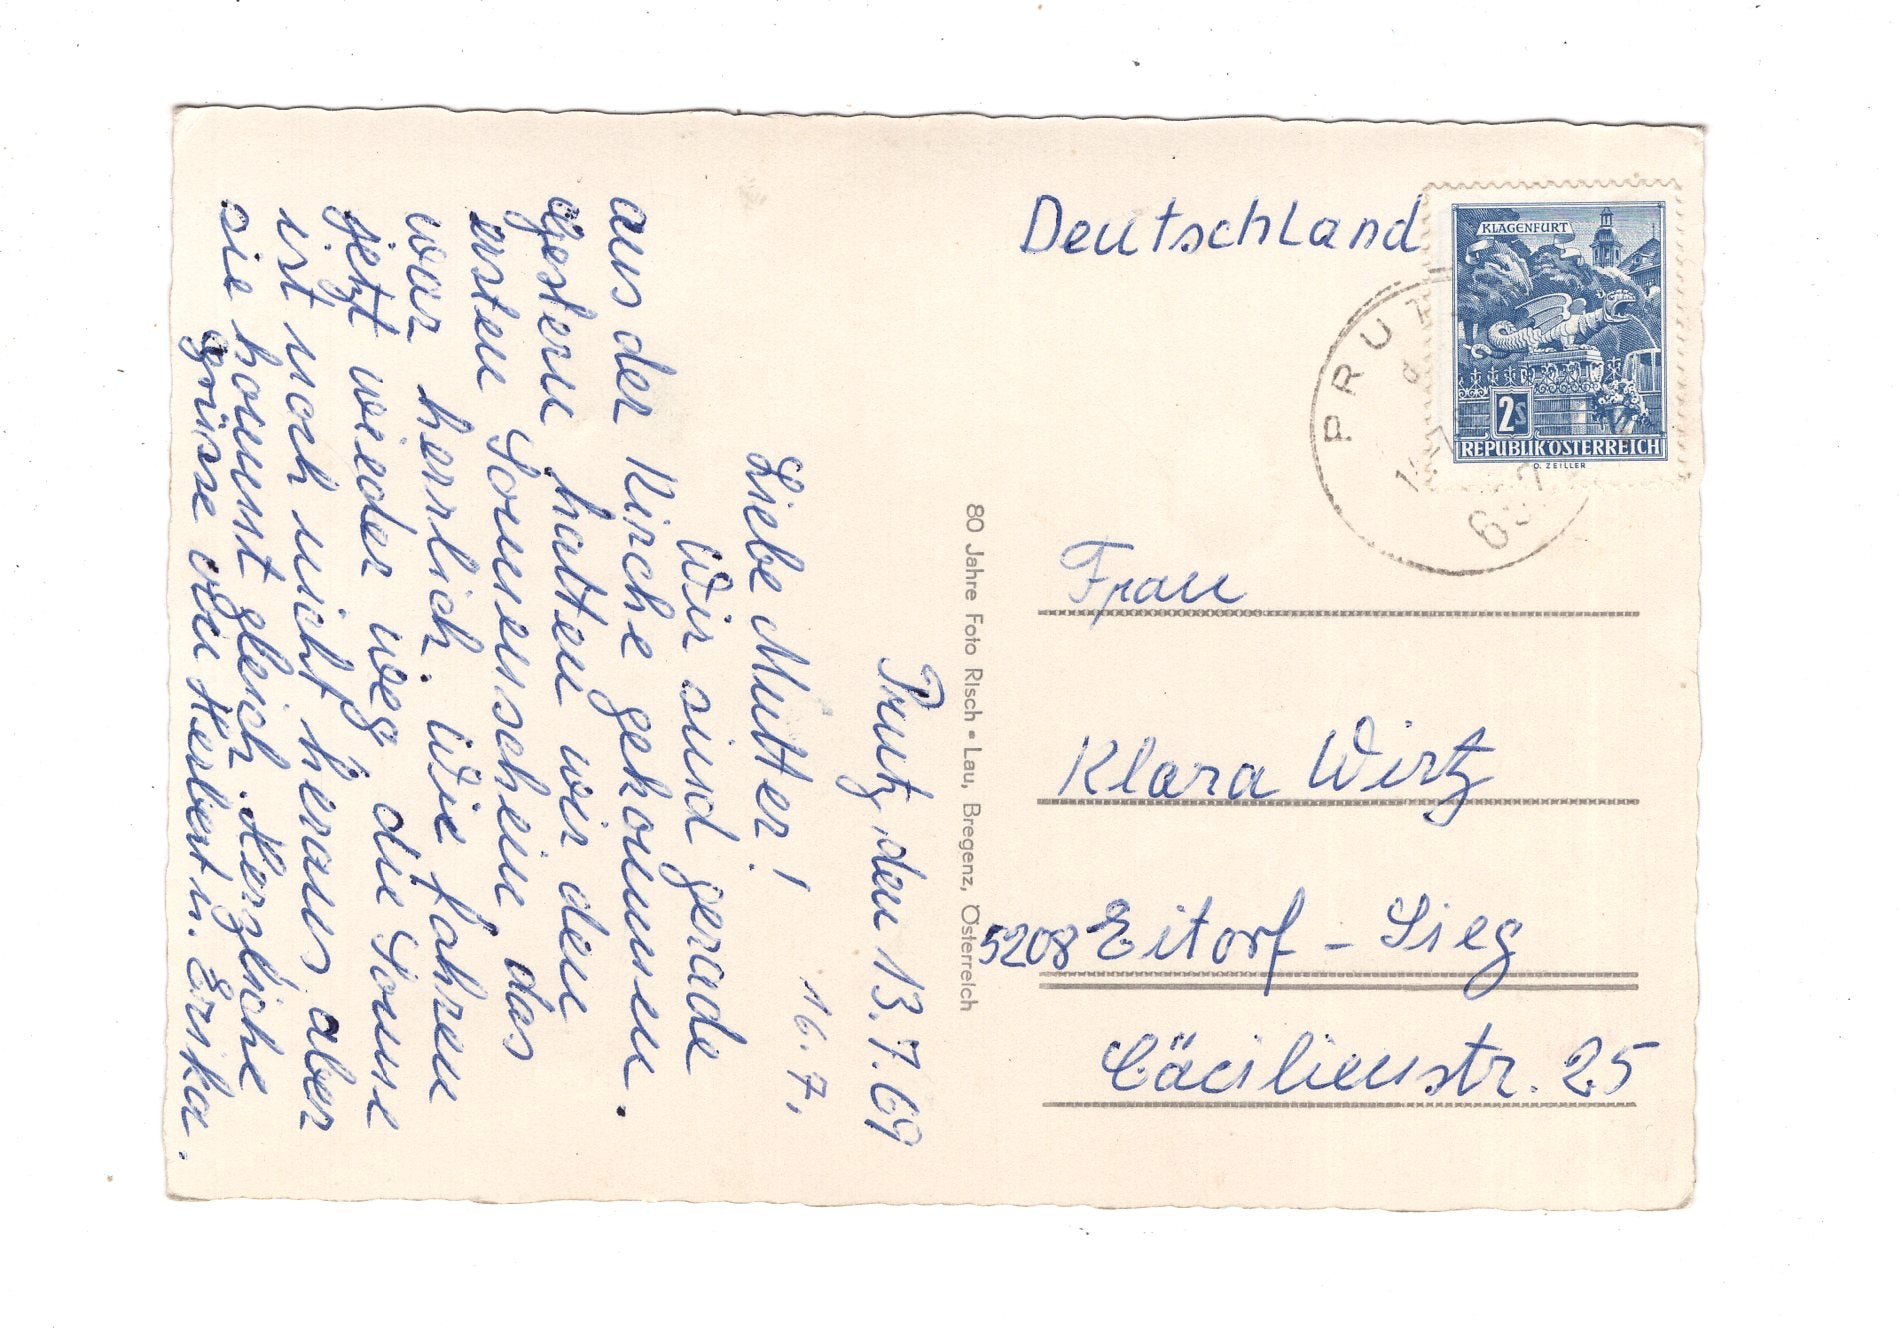 Prutz, den 13.7.69
16.7.
Liebe Mutter!
Wir sind gerade
aus der Kirche gekommen.
Gestern hatten wir den
ersten Sonnenschein das
war herrlich. Wie fahren
jetzt wieder weg die Sonne
ist noch nicht heraus aber
sie kommt gleich. Herzliche
grüsse von Herbert u. Erika.
80 Jahre Foto Risch • Lau, Bregenz, Österreich
Deutschland
KLAGENFURT
2S
REPUBLIK ÖSTERREICH
O. ZEILLER
PRUTZ
Frau
Klara Wirtz
5208 Eitorf - Sieg
Cäcilienstr. 25